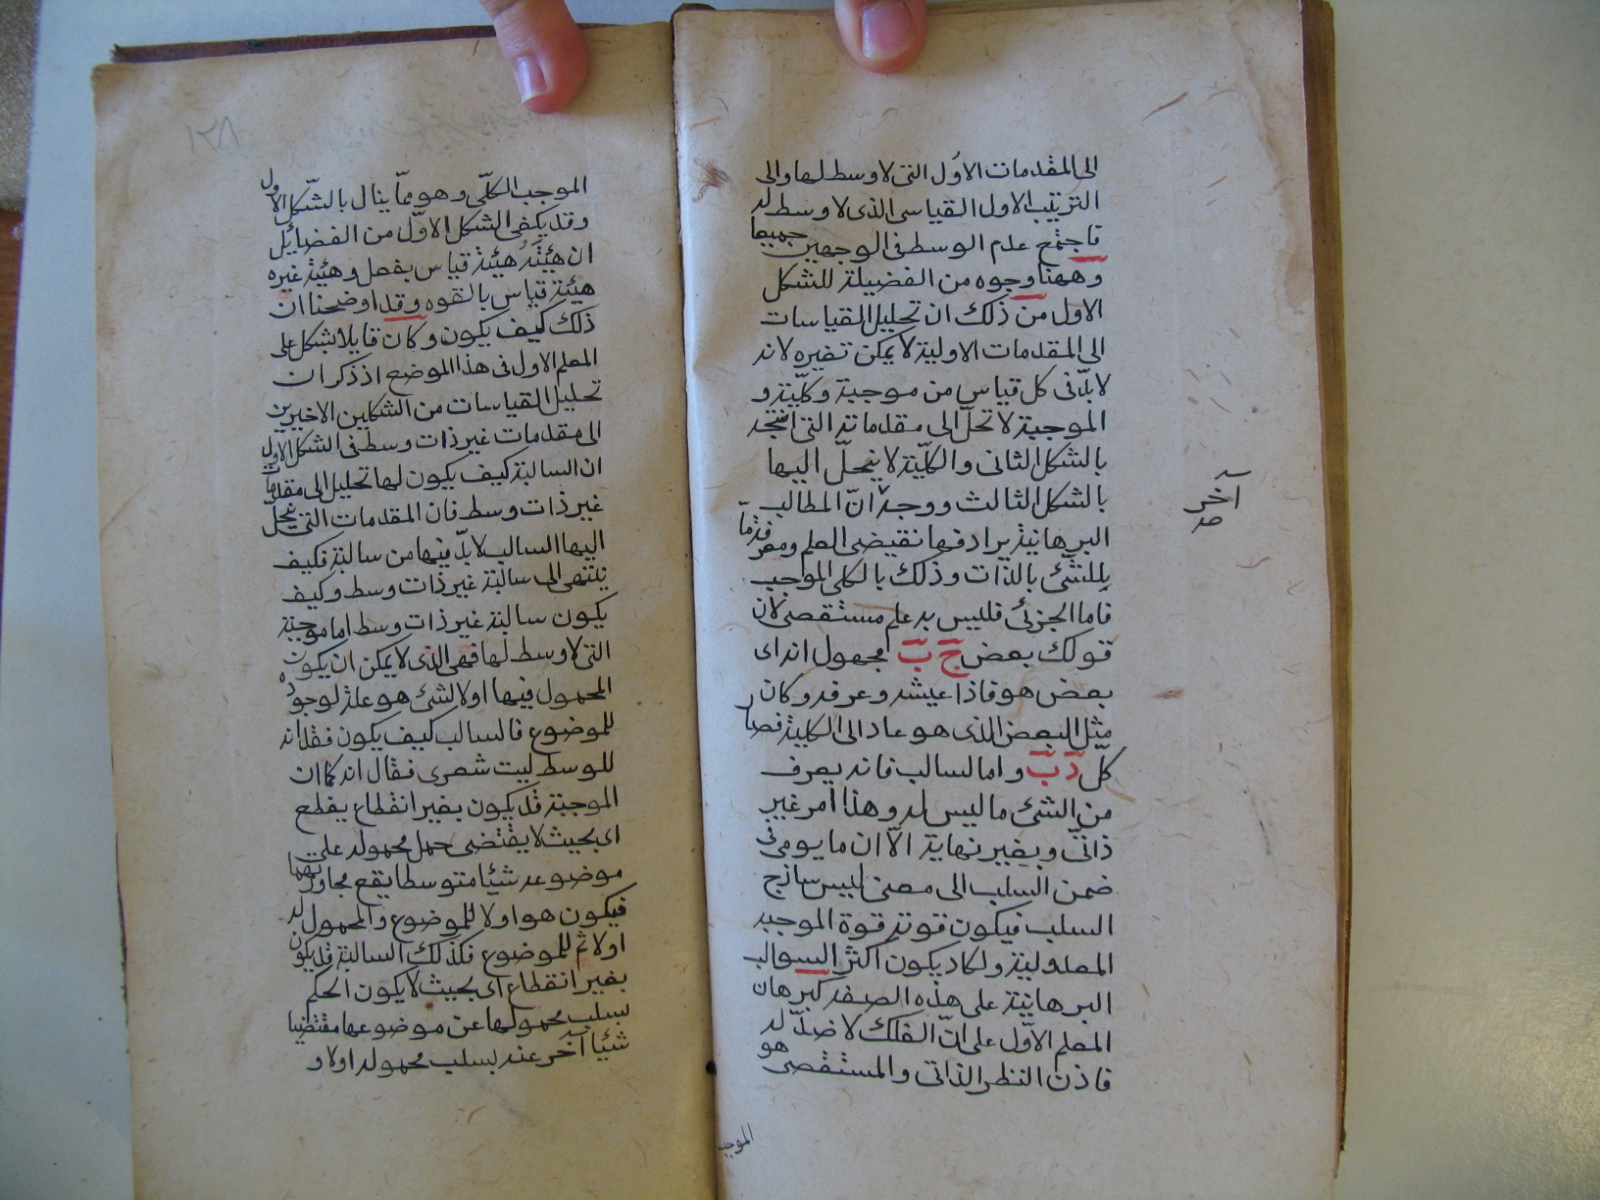 الى المقدمات الاُوَل التى لا وسط لها والى
الترتيب الاول القياسى الذى لا وسط له
فاجتمع عدم الوسط فى الوجهين جميعا
وههنا وجوه من الفضيلة للشكل
الاول من ذلك ان تحليل القياسات
الى المقدمات الاولية لا يمكن تغيره لانه
لابدّ فى كل قياس من موجبة وكلّيّة و
الموجبة لا تحلّ الى مقدماته التى انتجه
بالشكل الثانى والكلّيّة لا ينحلّ اليها
بالشكل الثالث ووجه انّ المطالب
البرهانية يراد فيها تقيضى العلم ومعرفة ما
للشئ بالذات وذلك بالكلى الموجب
فاما الجزئى فليس به علم مستقصى لان
قولك بعض ج ب مجهول انه اى
بعض هو فاذا عيشه وعرفه وكان
مثل البعض الذى هو عاد الى الكلية فصار
كلّ د ب واما السالب فانه يعرف
من الشئ ما ليس له وهذا امر غير
ذاتى وبغير نهاية الّا ان ما يومى فى
ضمن السلب الى معنى ليس ساذج
السلب فيكون قوته قوة الموجبه
المعدولية ولكاد يكون اكثر السوالب
البرهانية على هذه الصفة كبرهان
المعلم الاوّل على انّ الفلك لا ضدّ له
فاذن النظر الذاتى والمستقصى هو
الموجب
آخر
الموجب الكلّى وهو ممّا ينال بالشّكل الاول
وقد يكفى الشكل الاوّل من الفضائل
ان هيئته هيئة قياس بفعل وهيئة غيره
هيئة قياس بالقوه وقد اوضحنا ان
ذلك كيف يكون وكان قايلا بشكل على
المعلم الاول فى هذا الموضع اذ ذكر ان
تحليل القياسات من الشكلين الاخيرين
الى مقدمات غير ذات وسط فى الشكل الاول
ان السالبة كيف يكون لها تحليل الى مقدمات
غير ذات وسط فان المقدمات التى ينحلّ
اليها السالب لابدّ فيها من سالبة فكيف
ينتهى الى سالبة غير ذات وسط وكيف
يكون سالبة غير ذات وسط اما موجبة
التى لا وسط لها فهى الذى لا يمكن ان يكون
المحمول فيها اولا لشئ هو علة لوجوده
للموضوع فالسالب كيف يكون فقد انه
للوسط ليت شعرى فقال انه كما ان
الموجبة قد يكون بغير انقطاع يقطع
اى بحيث لا يقتضى حمل محموله على
موضوعه شيئا متوسطا يقع مجاوزتهما
فيكون هو اولا للموضوع والمحمول له
اولا ثم للموضوع فكذلك السالبة قد يكون
بغير انقطاع اى بحيث لا يكون الحكم
بسلب محمولها عن موضوعها مقتضيا
شيئا آخر عنه بسلب محموله اولا و
١٢٨